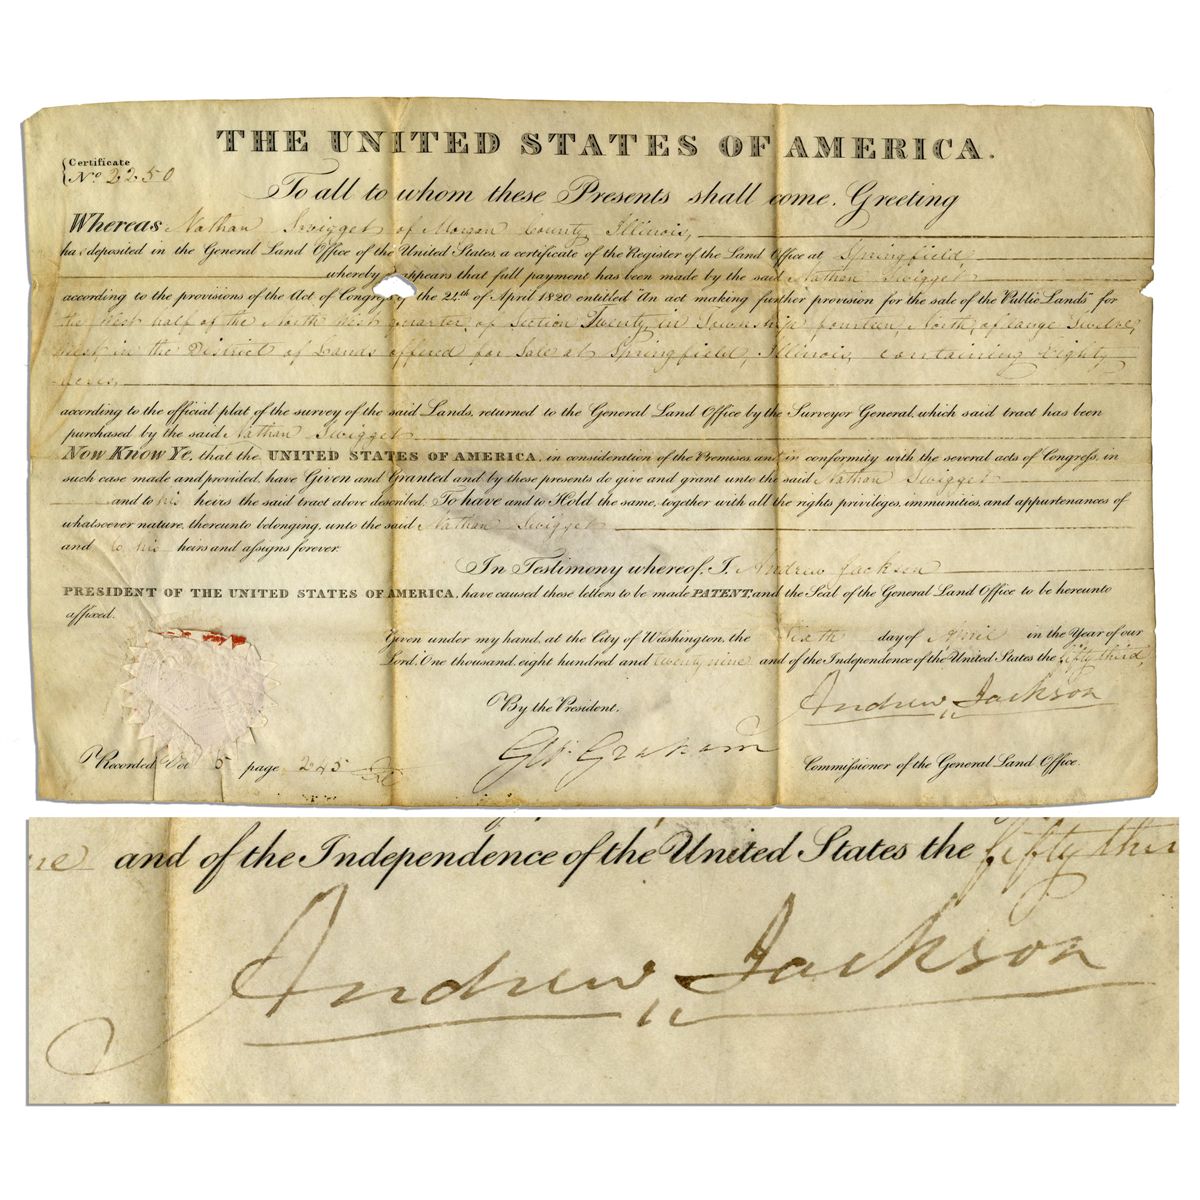 THE UNITED STATES OF AMERICA.
Certificate
No. 2250
To all to whom these Presents shall come, Greeting
Whereas Nathan Swigget of County, Illinois,
ha deposited in the General Land Office of the United States, a certificate of the Register of the Land Office at Springfield,
whereby appears that full payment has been made by the said Nathan Swigget
according to the provisions of the Act of Congress of the 24th of April 1820 entitled "An act making further provision for the sale of the Public Lands" for
the West half of the North West quarter, of Section Twenty, in Township fourteen, North, of range Twelve,
West, in the District of Lands offered for Sale at Springfield, Illinois, containing Eighty
acres,
according to the official plat of the survey of the said Lands, returned to the General Land Office by the Surveyor General, which said tract has been
purchased by the said Nathan Swigget
Now Know Ye, that the UNITED STATES OF AMERICA, in consideration of the Premises, and in conformity with the several acts of Congress, in
such case made and provided, have Given and Granted and by these presents do give and grant unto the said Nathan Swigget
and to his heirs the said tract above described: To have and to Hold the same, together with all the rights privileges, immunities, and appurtenances of
whatsoever nature, thereunto belonging, unto the said Nathan Swigget
and to his heirs and assigns forever.
In Testimony whereof, I, Andrew Jackson
PRESIDENT OF THE UNITED STATES OF AMERICA, have caused these letters to be made PATENT, and the Seal of the General Land Office to be hereunto
affixed.
Given under my hand, at the City of Washington, the Sixth day of April in the Year of our
Lord One thousand eight hundred and twenty nine and of the Independence of the United States the fifty third,
Andrew Jackson
By the President,
Graham
Commissioner of the General Land Office.
Recorded Vol 5 page 245
and of the Independence of the United States the fifty thir
Andrew Jackson